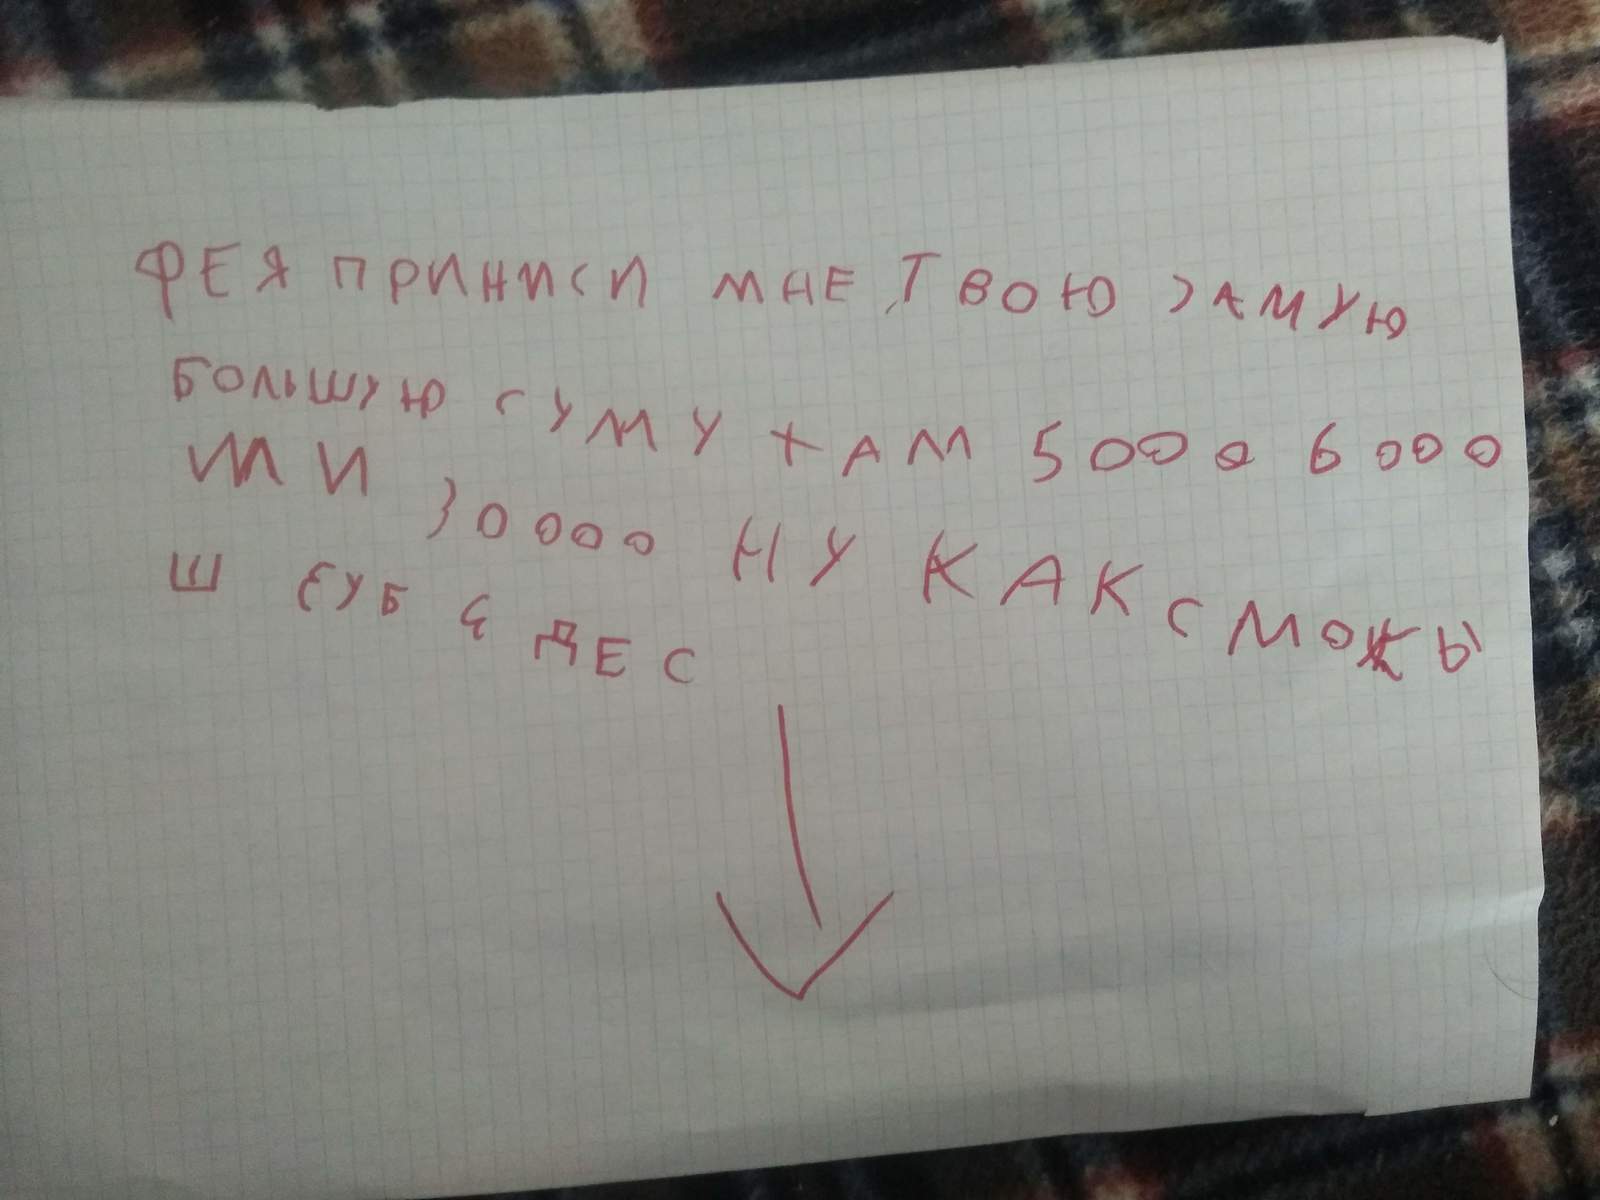 ФЕЯ ПРИНИСИ МНЕ ТВОЮ САМУЮ
БОЛЬШУЮ СУМУ ТАМ 5000 6000
ИЛИ 30000 НУ КАК СМОЖЫ
Ш ЗУБ ЗДЕС